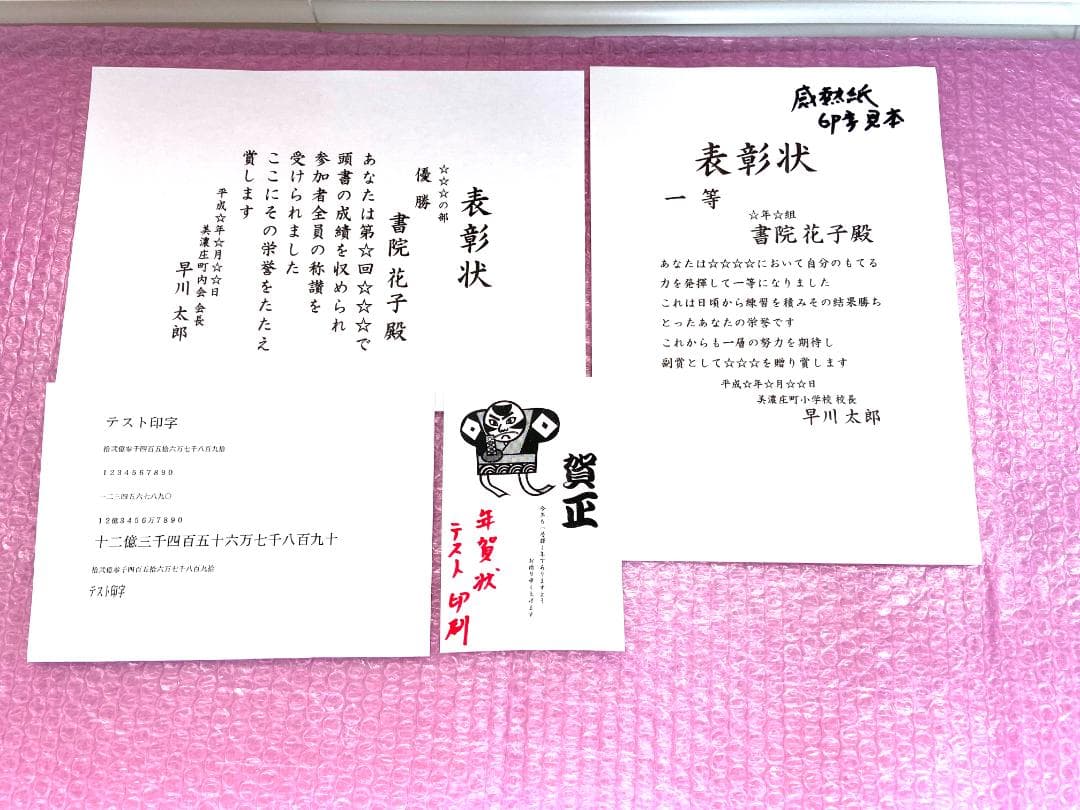 表彰状
☆☆☆の部
優勝
書院 花子 殿
あなたは第☆回☆☆☆で
頭書の成績を収められ
参加者全員の称讃を
受けられました
ここにその栄誉をたたえ
賞します
平成☆年☆月☆☆日
美濃庄町内会 会長
早川 太郎
感熱紙
印字見本
表彰状
一等
☆年☆組
書院 花子殿
あなたは☆☆☆☆において自分のもてる
力を発揮して一等になりました
これは日頃から練習を積みその結果勝ち
とったあなたの栄誉です
これからも一層の努力を期待し
副賞として☆☆☆を贈り賞します
平成☆年☆月☆☆日
美濃庄町小学校 校長
早川 太郎
テスト印字
拾弐億参千四百五拾六万七千八百九拾
1234567890
一二三四五六七八九〇
12億3456万7890
十二億三千四百五十六万七千八百九十
拾弐億参千四百五拾六万七千八百九拾
テスト印字
賀正
年賀状
テスト印刷